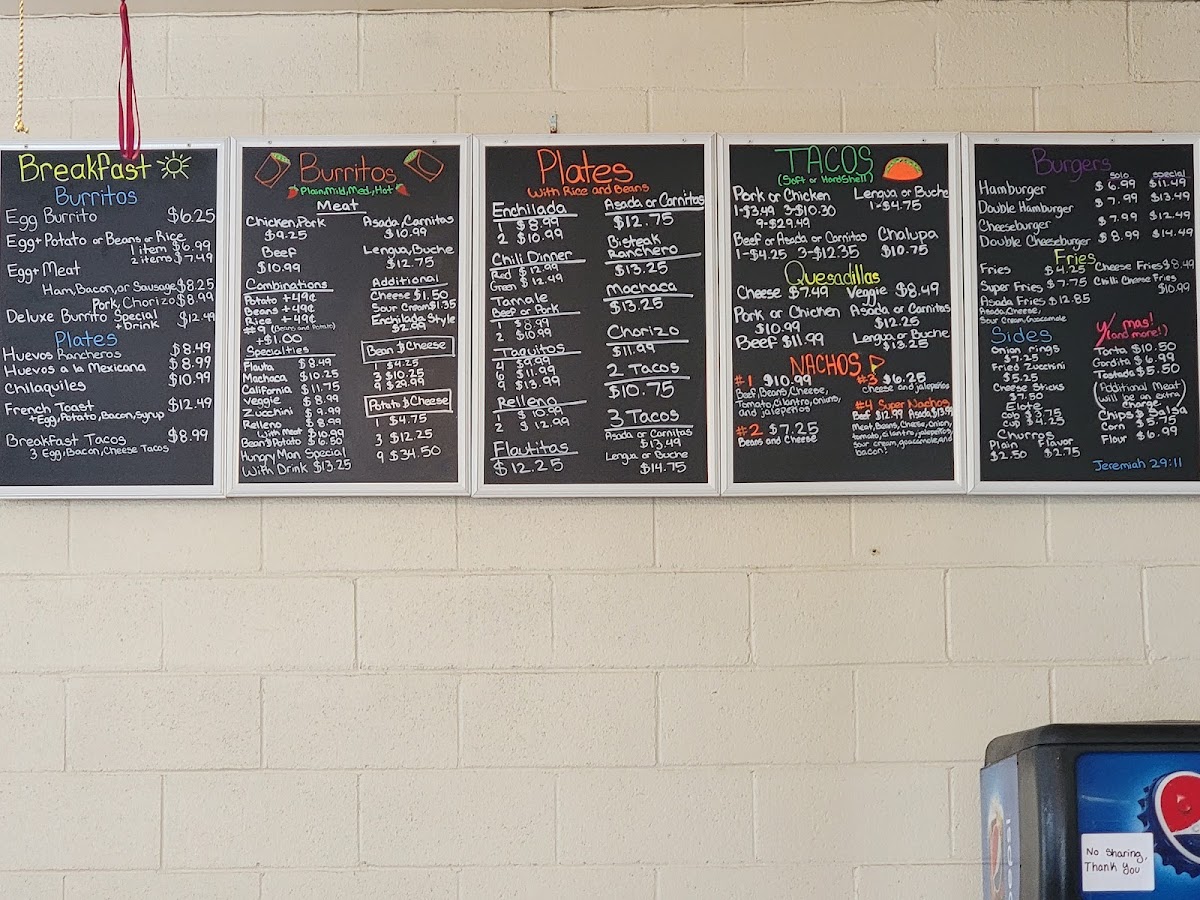 Breakfast
Burritos
Egg Burrito $6.25
Egg + Potato or Beans or Rice
1 item $6.99
2 items $7.49
Egg + Meat
Ham, Bacon, or Sausage $8.25
Pork, Chorizo $8.99
Deluxe Burrito Special $12.49
+ Drink
Plates
Huevos Rancheros $8.49
Huevos a la Mexicana $8.99
Chilaquiles $10.99
French Toast $12.49
+ Egg, Potato, Bacon, Syrup
Breakfast Tacos $8.99
3 Egg, Bacon, Cheese Tacos
Burritos
Plain, Mild, Med., Hot
Meat
Chicken, Pork
$9.25
Beef
$10.99
Asada, Carnitas
$10.99
Lengua, Buche
$12.75
Combinations
Potato +49¢
Beans +49¢
Rice +49¢
#9 (Beans and Potato)
+$1.00
Additional
Cheese $1.50
Sour Cream $1.35
Enchilada Style
$2.99
Specialties
Flauta $8.49
Machaca $10.25
California $11.75
Veggie $8.99
Zucchini $9.99
Relleno $8.99
With Meat $10.99
Bean & Potato $6.50
Hungry Man Special
With Drink $13.25
Bean $ Cheese
1 $4.25
3 $10.25
9 $29.99
Potato $ Cheese
1 $4.75
3 $12.25
9 $34.50
Plates
With Rice and Beans
Enchilada
1 $8.99
2 $10.99
Chili Dinner
Red $12.99
Green $12.49
Tamale
Beef or Pork
1 $8.99
2 $10.99
Taquitos
4 $9.99
6 $11.99
9 $13.99
Relleno
1 $10.99
2 $12.99
Flautitas
$12.25
Asada or Carnitas
$12.75
Bisteak
Ranchero
$13.25
Machaca
$13.25
Chorizo
$11.99
2 Tacos
$10.75
3 Tacos
Asada or Carnitas
$13.49
Lengua or Buche
$14.75
TACOS
(Soft or Hardshell)
Pork or Chicken
1-$3.49 3-$10.30
9-$29.49
Lengua or Buche
1-$4.75
Beef or Asada or Carnitas
1-$4.25 3-$12.35
Chalupa
$10.75
Quesadillas
Cheese $7.49 Veggie $8.49
Pork or Chicken
$10.99
Beef $11.99
Asada or Carnitas
$12.25
Lengua or Buche
$13.25
NACHOS
#1 $10.99
Beef, Beans, Cheese,
Tomato, Cilantro, Onion,
and jalepeños
#2 $7.25
Beans and Cheese
#3 $6.25
cheese and jalepeños
#4 Super Nachos
Beef $12.99 Asada $13.99
Meat, Beans, Cheese, Onion,
tomato, cilantro, jalepeños
Sour cream, guacamole, and
bacon!
Burgers
Solo Special
Hamburger $6.99 $11.49
Double Hamburger $7.99 $13.49
Cheeseburger $7.99 $12.49
Double Cheeseburger $8.99 $14.49
Fries
Fries $4.25
Super Fries $7.75
Asada Fries $12.85
Asada, Cheese,
Sour Cream, Guacamole
Cheese Fries $8.49
Chili Cheese Fries
$10.99
Sides
Onion rings
$7.25
Fried Zucchini
$5.25
Cheese Sticks
$7.50
Elote
Cob $3.75
Cup $4.25
Churros
Plain Flavor
$2.50 $2.75
Y mas!
(and more!)
Torta $10.50
Gordita $6.99
Tostada $5.50
(Additional Meat
will be an extra
charge.)
Chips $ Salsa
Corn $5.75
Flour $6.99
Jeremiah 29:11
No Sharing,
Thank You